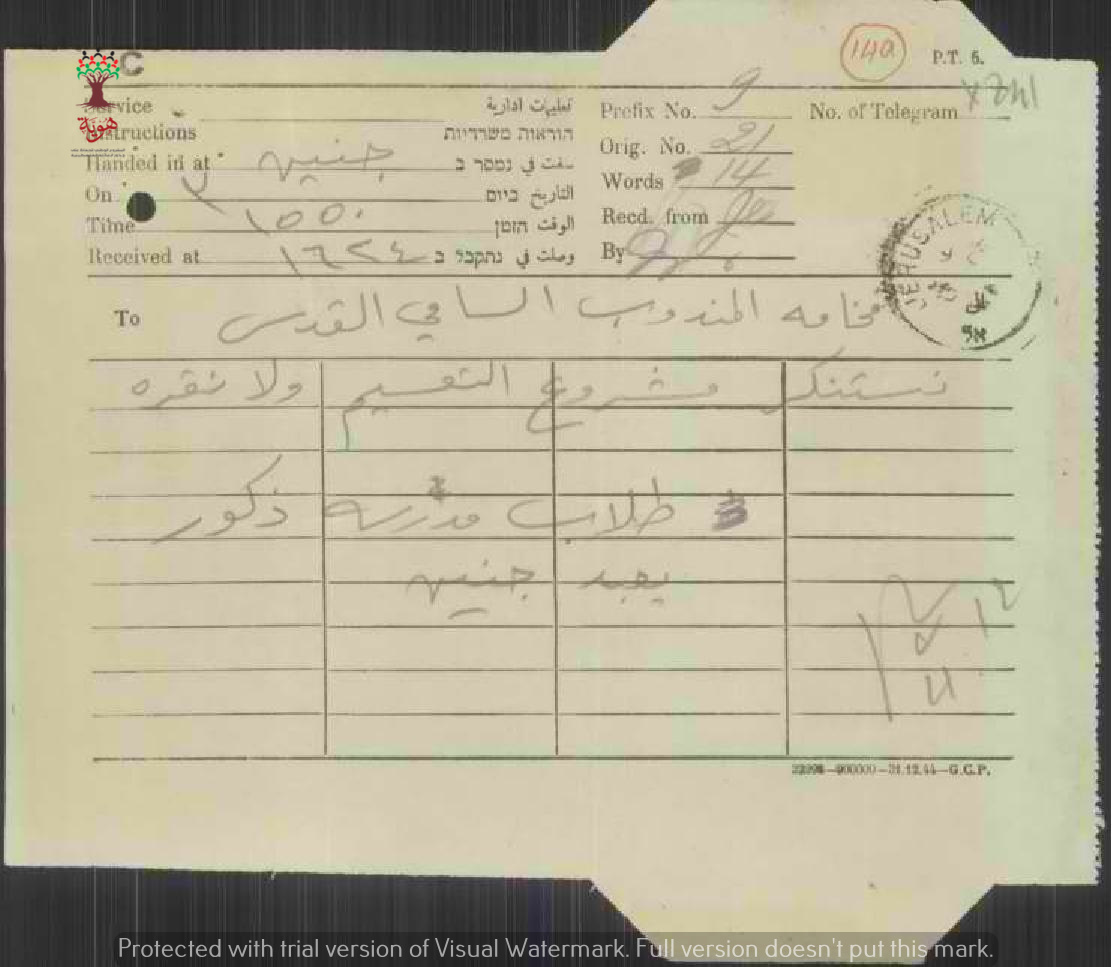 C
140
P.T. 5.
Service Instructions تعليمات ادارية הוראות משרדיות
Prefix No. 9 No. of Telegram
Orig. No. 21
Handed in at جنين سلمت في נמסר ב
Words 14
On ٣ التاريخ ביום
Recd. from
Time ١٥٥٠ الوقت הזמן
By
Received at ١٦٢٤ وصلت في נתקבל ב
JERUSALEM
To فخامه المندوب السامي القدس
نستنكر مشروع التقسيم ولا نقره
طلاب مدرسه ذكور
يعبد جنين
900000-31.12.44-G.C.P.
هوية
Protected with trial version of Visual Watermark. Full version doesn't put this mark.